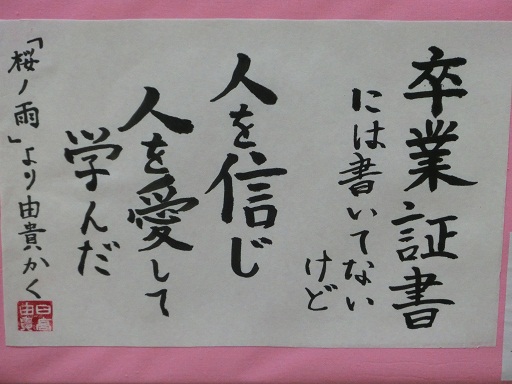 卒業証書
には書いてない
けど
人を信じ
人を愛して
学んだ
「桜ノ雨」より由貴かく
日高
由貴